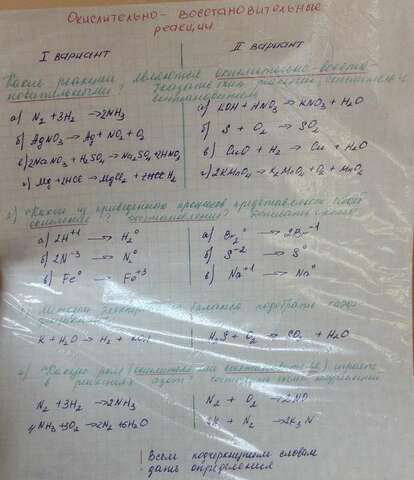 Окислительно- восстановительные
реакции
I вариант
II вариант
Какие реакции являются окислительно-восста-
новительными?
Указать окислитель и
восстановитель
а) N₂ + 3H₂ → 2NH₃
б) AgNO₃ → Ag + NO₂ + O₂
в) 2NaNO₃ + H₂SO₄ → Na₂SO₄ + 2HNO₃
г) Mg + 2HCl → MgCl₂ + H₂
а) KOH + HNO₃ → KNO₃ + H₂O
б) S + O₂ → SO₂
в) CuO + H₂ → Cu + H₂O
г) 2KMnO₄ → K₂MnO₄ + O₂ + MnO₂
Какой из приведённых процессов представляет собой
окисление? восстановление?
а) 2H⁺¹ → H₂⁰
б) 2N⁻³ → N₂⁰
в) Fe⁰ → Fe⁺³
а) Br₂⁰ → 2Br⁻¹
б) S⁻² → S⁰
в) Na⁺¹ → Na⁰
Методом баланса подобрать
K + H₂O → H₂ + KOH
H₂S + O₂ → SO₂ + H₂O
Какую роль (окислителя или восстановителя) играет
в реакциях азот?
N₂ + 3H₂ → 2NH₃
4NH₃ + 3O₂ → 2N₂ + 6H₂O
N₂ + O₂ → 2NO
6K + N₂ → 2K₃N
Всем подчеркнутым словам
дать определения